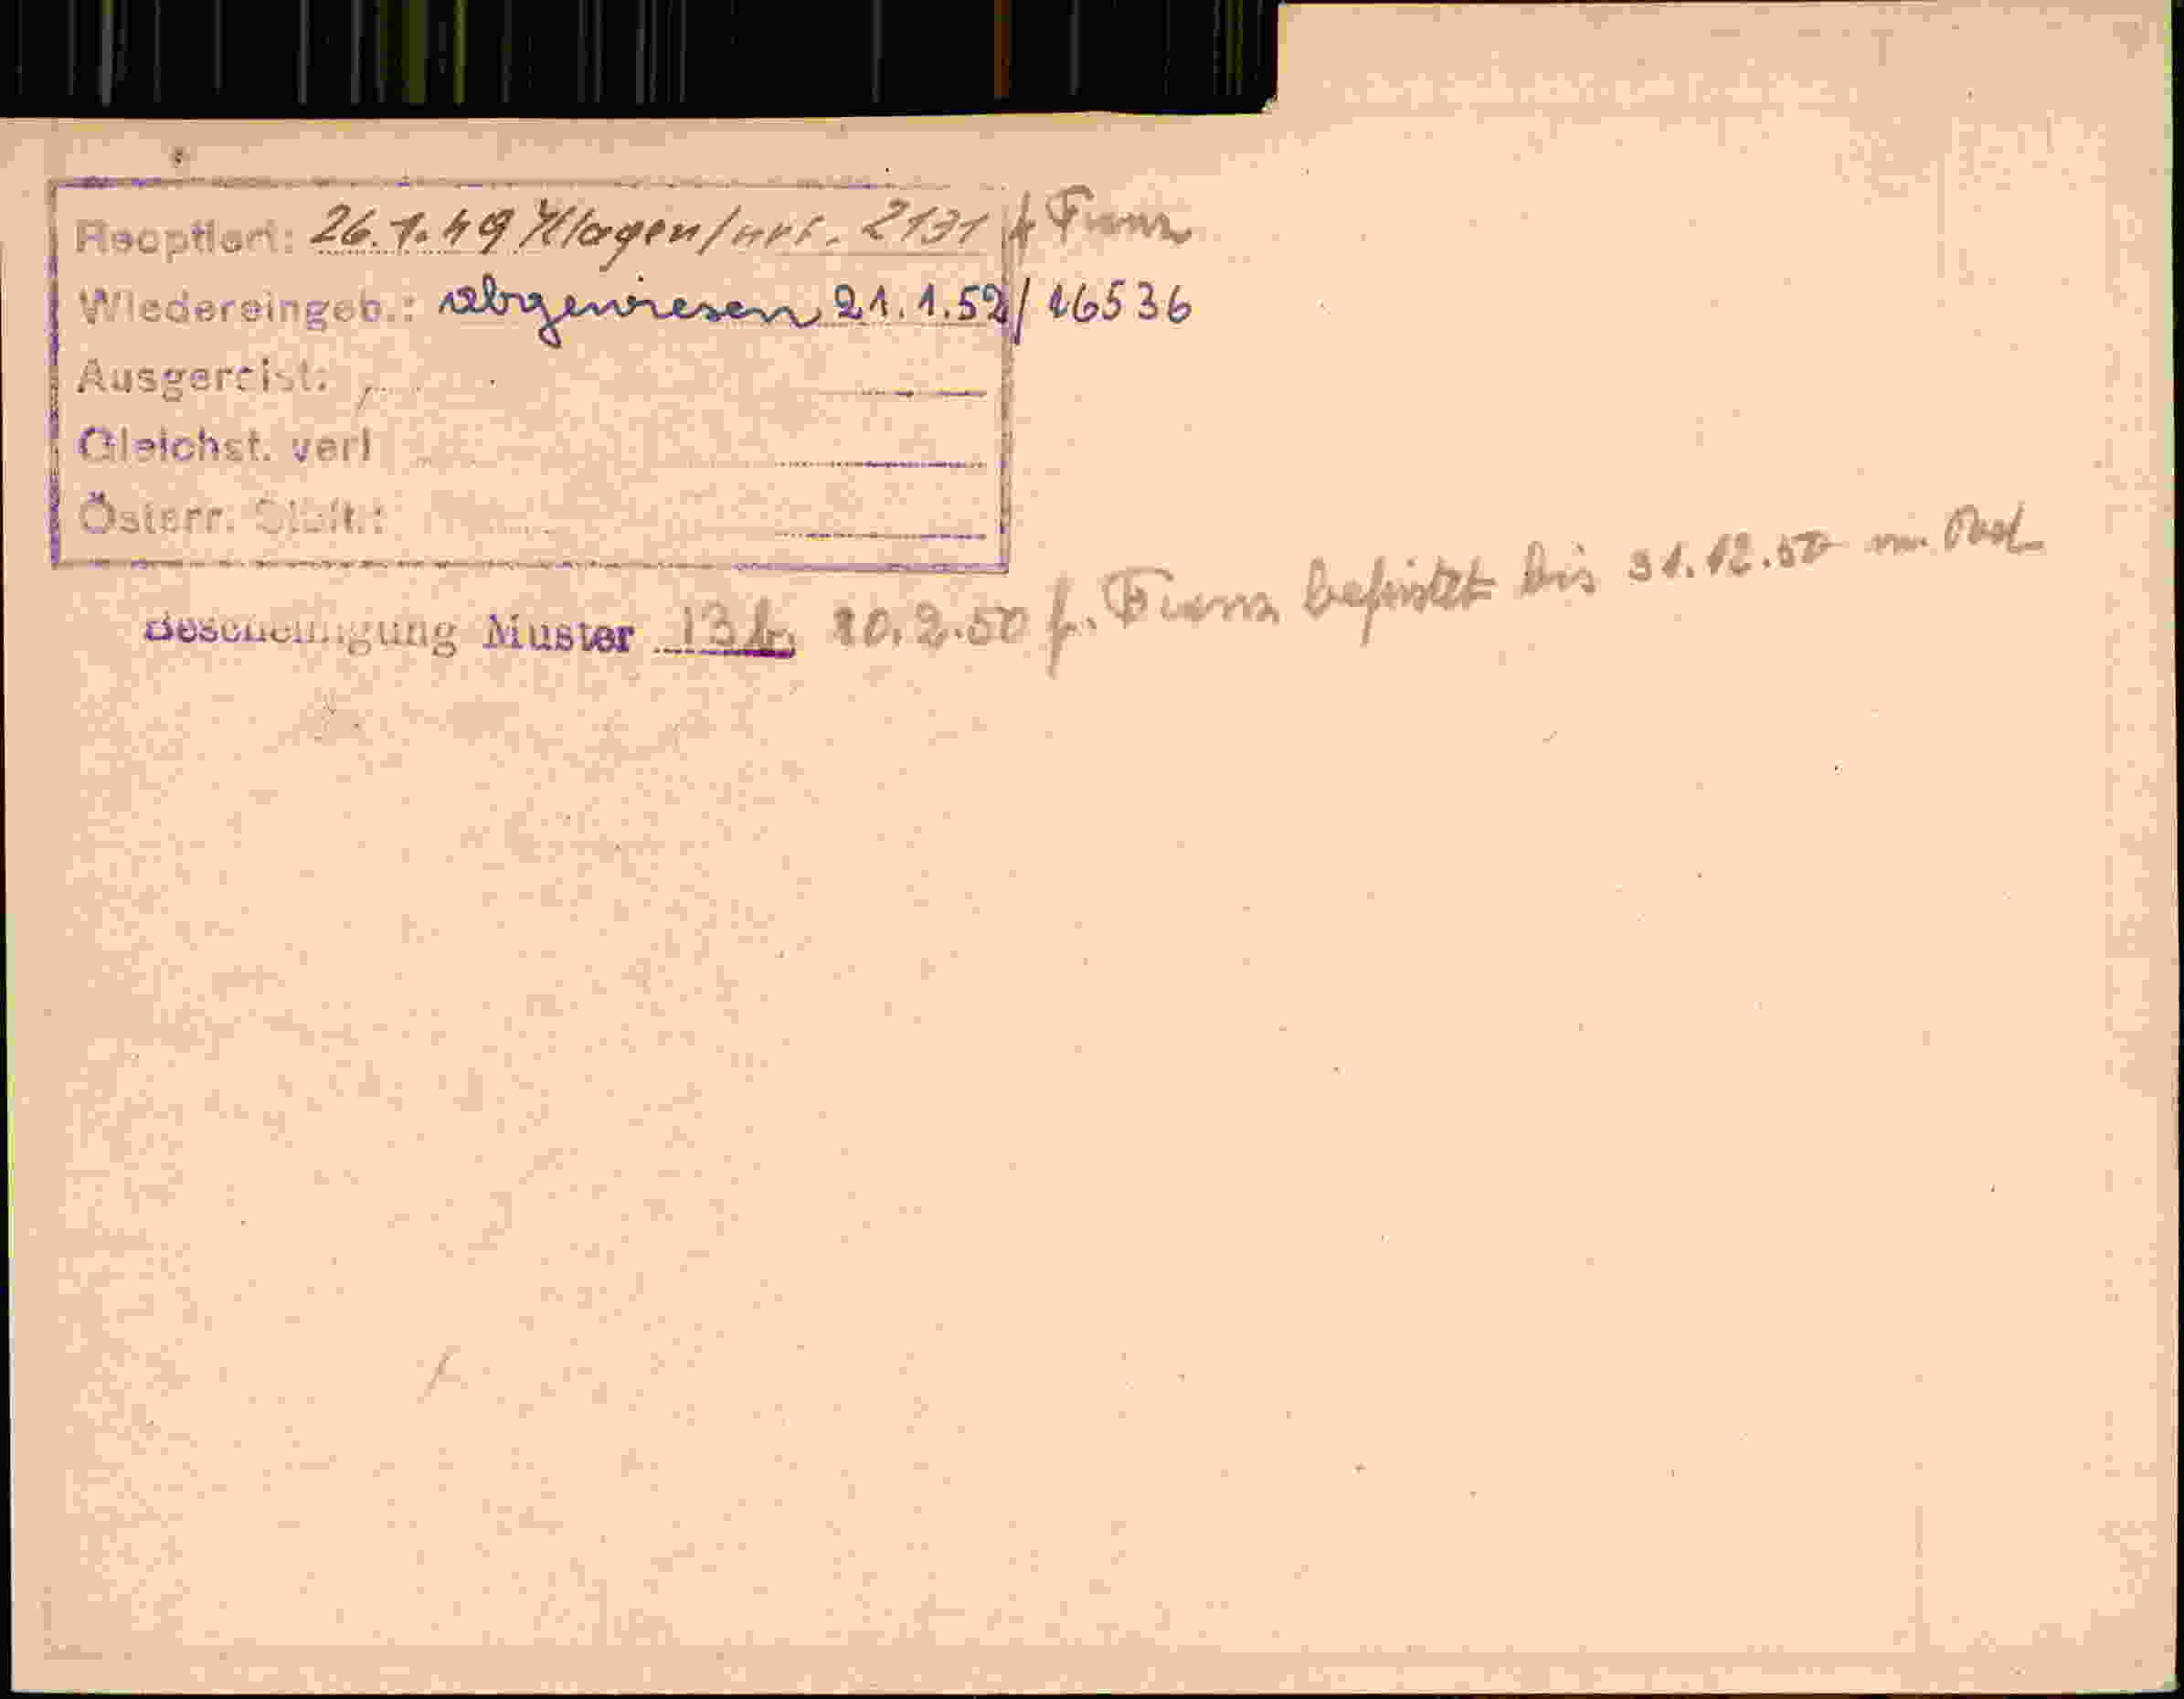 Reoptiert: 26.1.49 Klagenfurt. 2131 f. Franz
Wiedereingeb.: abgewiesen 21.1.52/16536
Ausgereist:
Gleichst. verl
Österr. Stbft.:
Bescheinigung Muster 13b, 20.2.50 f. Franz befristet bis 31.12.50